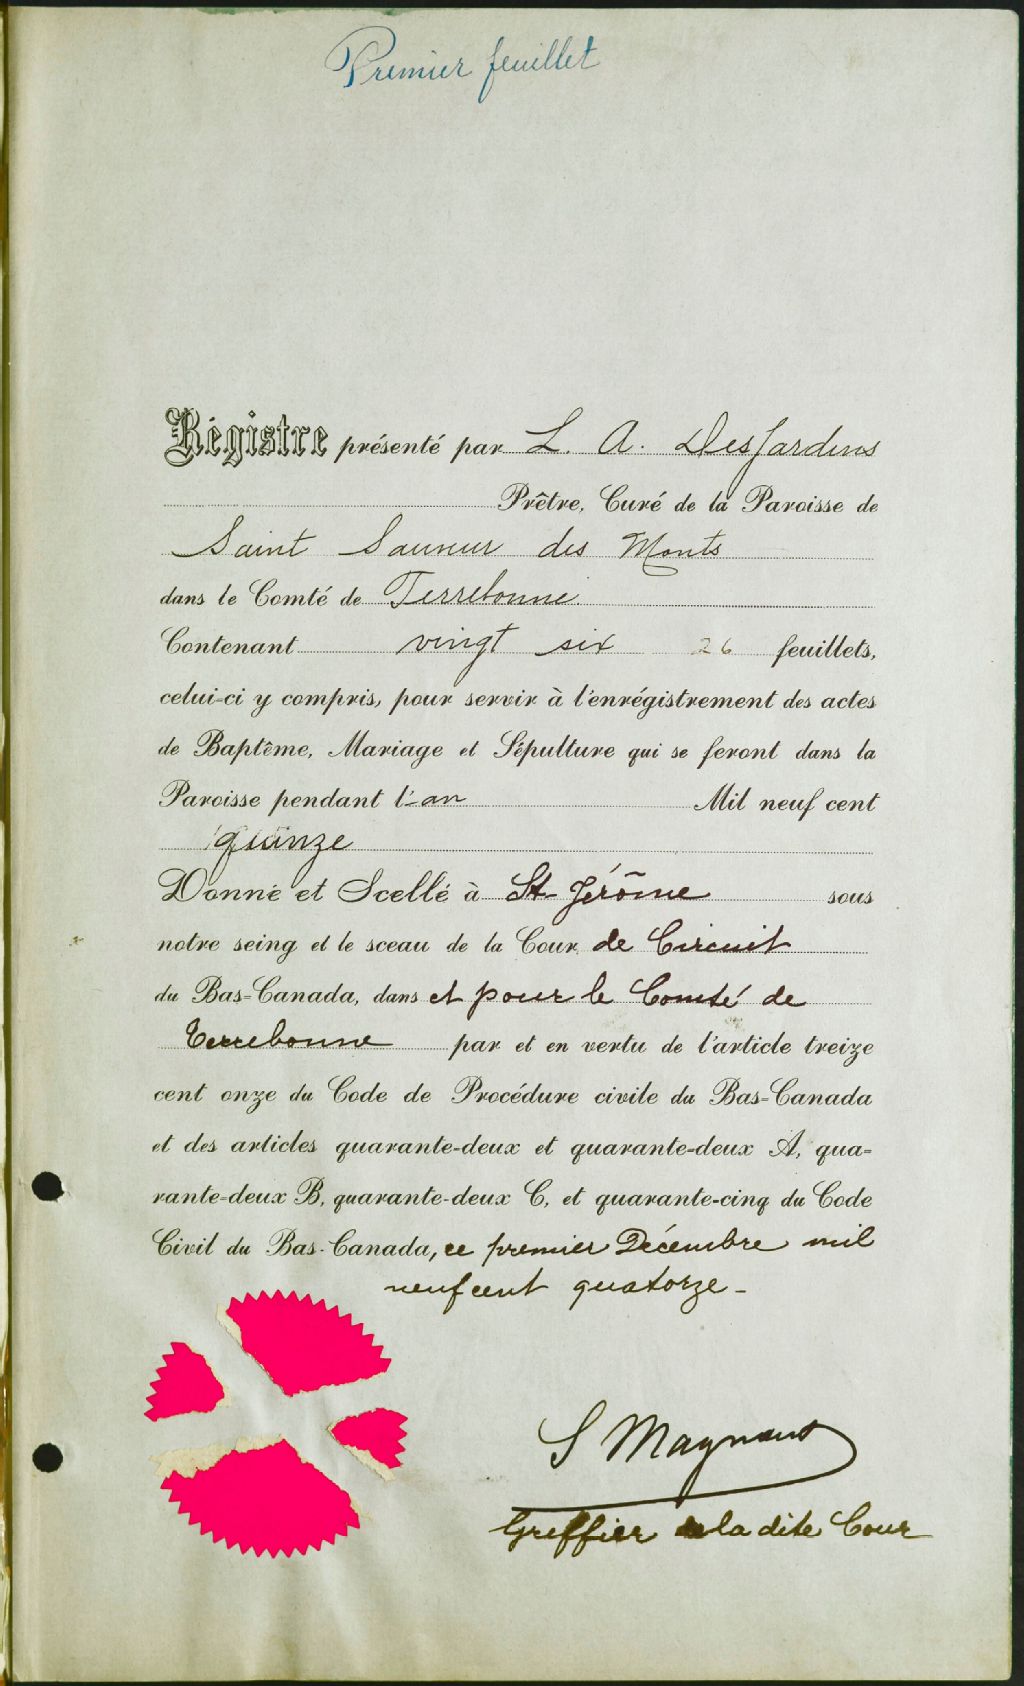 Premier feuillet
Régistre présenté par L. A. DesJardins
Prêtre, Curé de la Paroisse de
Saint Sauveur des Monts
dans le Comté de Terrebonne
Contenant vingt six 26 feuillets,
celui-ci y compris, pour servir à l'enrégistrement des actes
de Baptême, Mariage et Sépulture qui se feront dans la
Paroisse pendant l'an Mil neuf cent
quinze
Donné et Scellé à St Jérôme sous
notre seing et le sceau de la Cour de Circuit
du Bas-Canada, dans et pour le Comté de
Terrebonne par et en vertu de l'article treize
cent onze du Code de Procédure civile du Bas-Canada
et des articles quarante-deux et quarante-deux A, qua-
rante-deux B, quarante-deux C, et quarante-cinq du Code
Civil du Bas-Canada, ce premier Décembre mil
neuf cent quatorze -
S Magnant
Greffier de la dite Cour